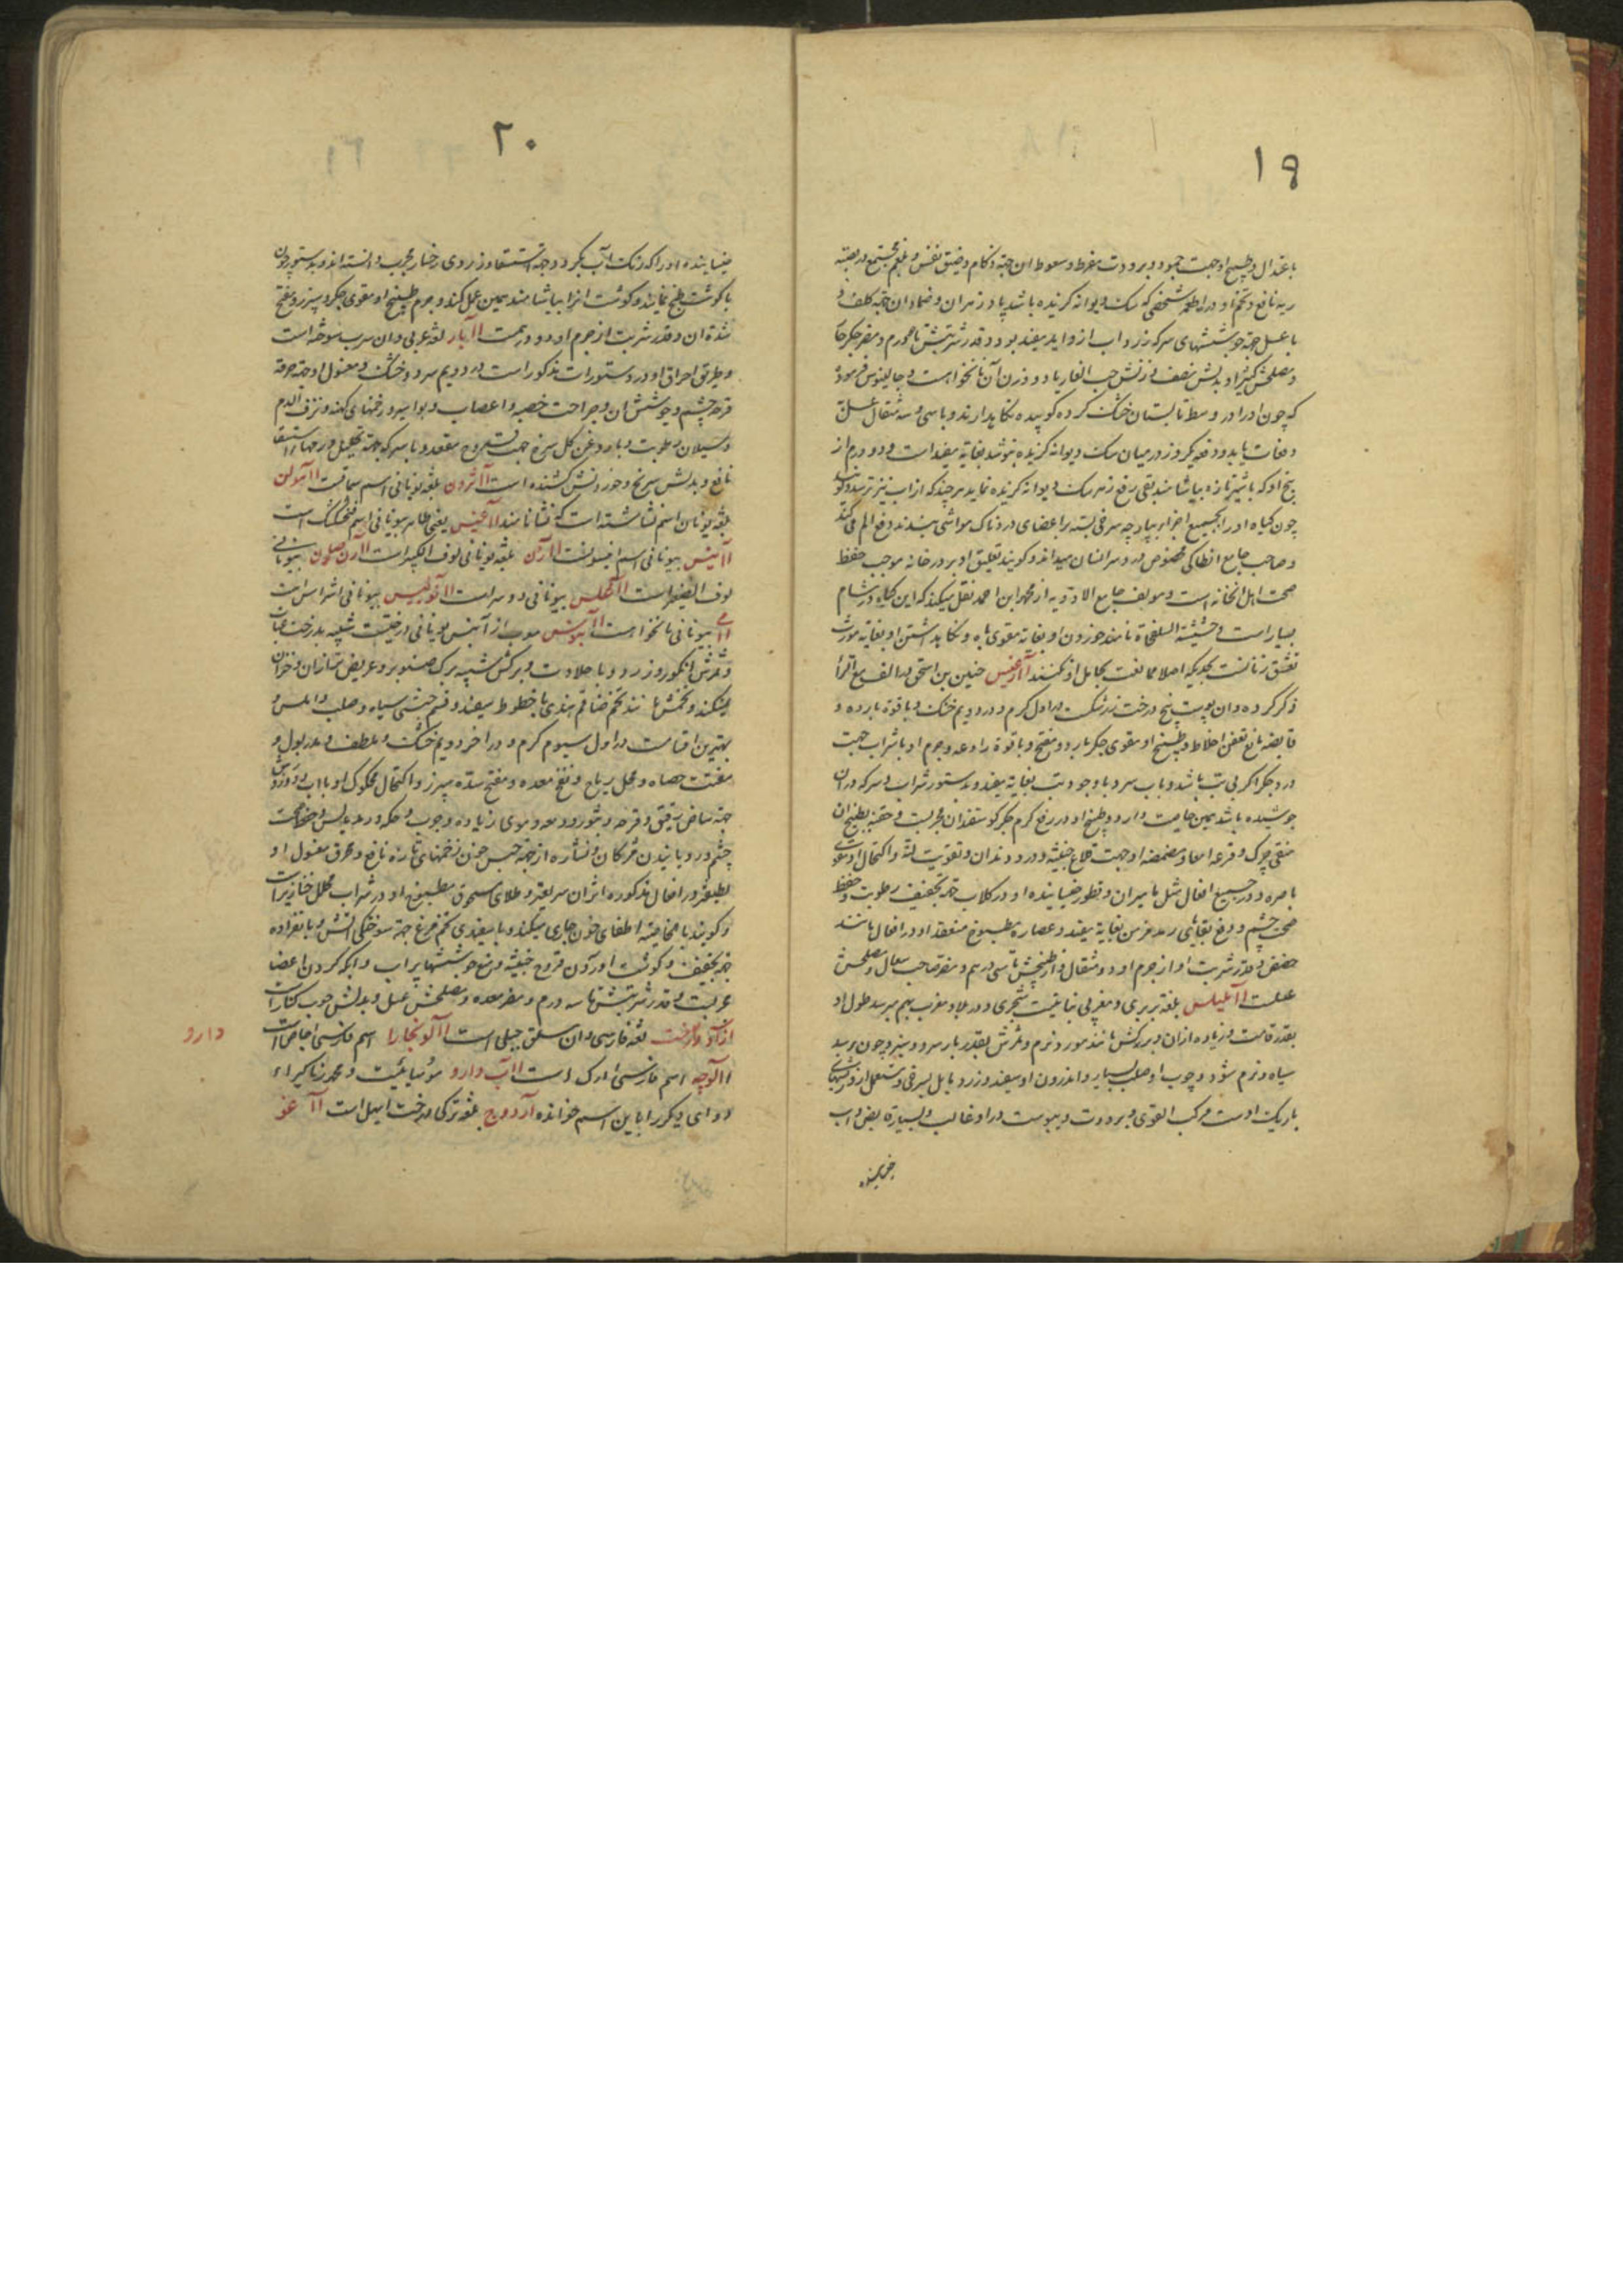 ۱۹
باعتدال و طبیخ او جهت جمود و برودت مفرط و سعوط ان جهة زکام و ضیق نفس و بلغم مجتمع در قصبه
ریه نافع و تخم او در اطعمه شخصی که سک دیوانه کزیده باشد پادزهر ان و ضماد ان جهة کلف و
با عسل جهة جوششهای سر که زرداب از و اید مفید بود و قدر شربتش تا محورم و مضر جکر حار
و مصلحش کثیرا و بدلش نصف وزنش حب الغار یا دو وزن آن نانخواه است و جالینوس فرموده
که چون او را در وسط تابستان خشک کرده کوبیده نکاهدارند و با سی و سه مثقال عسل
دفعات یابد و دفعه یکروز در میان سک دیوانه کزیده بنوشد بغایة مفید است و دو درم از
بیخ او که با شیر تازه بیاشامند بقی رفع زهر سک دیوانه کزیده نماید هر چند که از اب نیز ترسد و کویند
چون کیاه او را بجمیع اجزا بپارچه سرخی بسته بر اعضای دردناک مواشی ببندند رفع الم می کند
و صاحب جامع انطاکی مخصوص درد سر انسان میداند و کویند تعلیق او بر در خانه موجب حفظ
صحت اهل انخانه است و مولف جامع الادویه از محمد ابن احمد نقل میکند که این کیاه در شام
بسیار است و حشیشة السلحفاة نامند و خوردن او بغایة مقوی باه و نکاهداشتن او بغایة مورث
تعشق زنانست بحدیکه اصلا ممانعت بحامل او نکنند اارغیس حنین بن اسحق بدال الف مع الرا
ذکر کرده و ان پوست بیخ درخت زرشکست در اول کرم و در دویم خشک و با قوة بارده و
قابضه مانع تعفن اخلاط و طبیخ او مقوی جکر بارد و مفتح و با قوة رادعه و جرم او با شراب جهت
درد جکر اکر بی تب باشد و با اب سرد با وجود تب بغایة مفید و بدستور شراب و سرکه که در ان
جوشیده باشد همین خاصیت دارد و طبیخ او در رفع کرم جکر کوسفندان مجربست و حقنه بطبیخ ان
منقی چرک و قرحه امعا و مضمضه او جهت قلاع خبیثه و درد دندان و تقویت لثه و اکتحال او مقوی
باصره و در جمیع افعال مثل مامیران و قطور خیسانیده او در کلاب جهة تخفیف رطوبت و حفظ
صحت چشم و رفع بقایای رمد مزمن بغایة مفید و عصاره مطبوخ منعقد او در افعال مانند
حضض و قدر شربت او از جرم او دو مثقال و از طبخش تا سی درهم و مضر صاحب سعال و مصلحش
عسلست اآملیلس بلغة بربری و مغربی نباتیست شجری و در بلاد مغرب بهم میرسد طول او
بقدر قامت و زیاده از ان و برکش مانند مورد و نرم و ثمرش بقدر بار سرو و سبز و چون برسد
سیاه و نرم شود و چوب او صلب بسیار و اندرون او سفید و زرد مایل بسرخی و مستعمل از و ریشهای
باریک اوست مرکب القوی و برودت و یبوست در او غالب و بسیار قابض و اب
خیسانیده
۲۰
خیسانیده او را که رنک آب بکیرد و جهة استسقا و زردی رخسار مجرب دانسته اند و بدستور چون
با کوشت طبخ نمایند و کوشت انرا بیاشامند همین عمل کند و جرم طبیخ او مقوی جکر و سپرز و مفتح
سده ان و قدر شربت از جرم او دو درهمست اآبار لغة عربی و ان سرب سوخته است
و طریق احراق او در دستورات مذکور است در دویم سرد و خشک و مغسول او جهة حرقة
قرحه چشم و جوشش ان و جراحت خصیه و اعصاب و بواسیر و زخمهای کهنه و نزف الدم
و سیلان رطوبت و با روغن کل سرخ جهت قروح مقعد و با سرکه جهة تحلیل ورمها و استسقا
نافع و بدلش سرنج و خوردنش کشنده است اآثرون بلغة یونانی اسم سماقست اآمولن
بلغة یونان اسم نشاسته است که نشا نامند اآغنیس یعنی طاهر بیونانی اسم فنجنکشت است
اآنیس بیونانی اسم انیسونست اآرن بلغة یونانی لوف الکبیر است اآرن صارون بیونانی
لوف الصغیر است اآلجلس بیونانی دوسر است اآنوبیس بیونانی اشراس است
اآمی بیونانی نانخواه است اآبنوس معرب از آبنس یونانی درختیست شبیه بدرخت عناب
و ثمرش انکور و زرد و با حلاوت و برکش شبیه ببرک صنوبر و عریض تر از ان و خزان
نمیکند و تخمش مانند تخم حنا قسم هندی با خطوط سفید و قسم حبشی سیاه و صلب و املس و
بهترین اقسامست در اول سیوم کرم و در اخر دویم خشک و ملطف و مدر بول و
مفتت حصاه و محلل ریاح و نفخ معده و مفتح سده سپرز و اکتحال محکوک او با اب
جهة بیاض رقیق و قرحه و بثور و دمعه و موی زیاده و جرب و حکه و رمد یابس و حفظ صحت
چشم و رویانیدن مژکان و نشاره او جهة حبس خون زخمهای تازه نافع و محرق مغسول او
لطیفتر و در افعال مذکوره اثر ان سریعتر و طلای مسحوق مطبوخ او در شراب محلل خنازیر است
و کویند بالخاصیة اطفای خون جاری میکند و با سفیدی تخم مرغ جهة سوختکی اتش و بانفراده
جهة تجفیف و کوشت اوردن قروح خبیثه و رفع جوششها پر اب و ابله کردن اعضا
مجربست و قدر شربتش تا سه درم و مضر معده و مصلحش عسل و بدلش چوب کنار است
ازاد درخت لغة فارسی و ان سلق جبلی است اآلو بخارا اسم فارسی اجاص است
اآلوچه اسم فارسی ادرک است اآب دارو مومیائیست و محمد زکریا
دوای دیکر را باین اسم خوانده آردوج بلغة ترکی درخت ابهل است اآ غنو
دارو